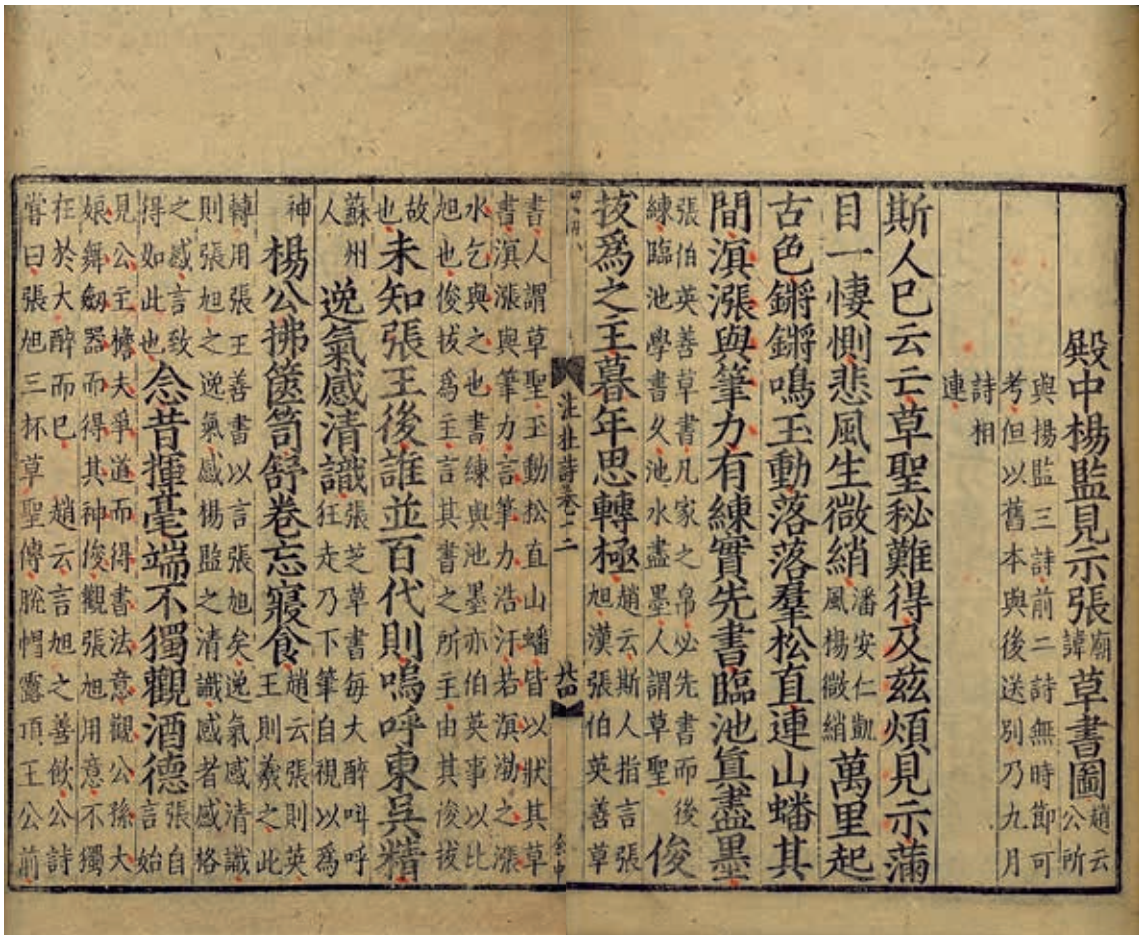 殿中楊監見示張廟諱草書圖趙云公所
與揚監三詩前二詩無時節可
考但以舊本與後送別乃九月
詩相
連
斯人已云亡草聖秘難得及茲煩見示滿
目一悽惻悲風生微綃潘安仁凱風揚微綃萬里起
古色鏘鏘鳴玉動落落羣松直連山蟠其
間溟漲與筆力有練實先書臨池真盡墨
張伯英善草書凡家之帛必先書而後練臨池學書久池水盡墨人謂草聖俊
拔爲之主暮年思轉極趙云斯人指言張旭漢張伯英善草
注杜詩卷二
廿四
書人謂草聖玉動松直山蟠皆以狀其草
書溟漲與筆力言筆力浩汗若溟渤之漲
水乞與之也書練與池墨亦伯英事以比
旭也俊拔爲主言其書之所主由其俊拔
故也未知張王後誰並百代則嗚呼東吳精
蘇州人逸氣感清識張芝草書每大醉呌呼狂走乃下筆自視以爲
神楊公拂篋笥舒卷忘寢食趙云張則英王則羲之此
轉用張王善書以言張旭矣逸氣感清識
則張旭之逸氣感楊監之清識感者感格
之感言致得如此也念昔揮毫端不獨觀酒德張自言始
見公主檐夫爭道而得書法意觀公孫大
娘舞劒器而得其神俊觀張旭用意不獨
在於大醉而已 趙云言旭之善飲公詩
嘗曰張旭三杯草聖傳脫帽露頂王公前